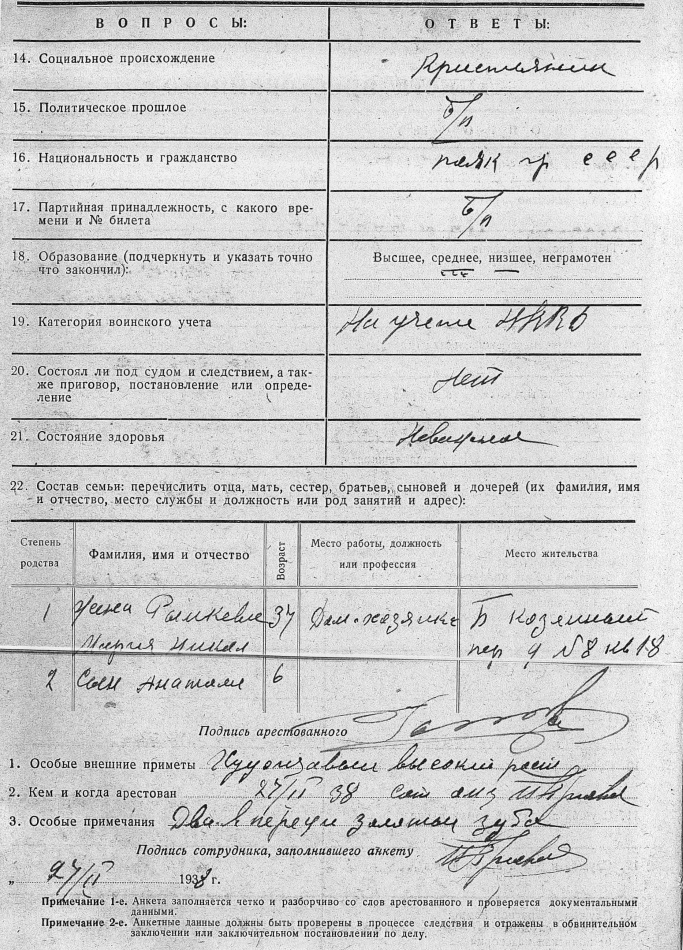 ВОПРОСЫ: ОТВЕТЫ:
14. Социальное происхождение Кристьянин
15. Политическое прошлое б/п
16. Национальность и гражданство поляк гр СССР
17. Партийная принадлежность, с какого вре-
мени и № билета б/п
18. Образование (подчеркнуть и указать точно
что закончил): Высшее, среднее, низшее, неграмотен
19. Категория воинского учета На учете НКВД
20. Состоял ли под судом и следствием, а так-
же приговор, постановление или опреде-
ление Нет
21. Состояние здоровья Неважное
22. Состав семьи: перечислить отца, мать, сестер, братьев, сыновей и дочерей (их фамилия, имя
и отчество, место службы и должность или род занятий и адрес):
Степень родства Фамилия, имя и отчество Возраст Место работы, должность или профессия Место жительства
1 Жена 37 Дом-хозяйка Б Козихинский
Мария Никол пер д №8 кв 18
2 Сын Анатоли 6
Подпись арестованного
1. Особые внешние приметы Худощавый высокий рост
2. Кем и когда арестован 27/II 38
3. Особые примечания Два впереди золотых зуба
Подпись сотрудника, заполнившего анкету
„ 27/II 1938 г.
Примечание 1-е. Анкета заполняется четко и разборчиво со слов арестованного и проверяется документальными
данными.
Примечание 2-е. Анкетные данные должны быть проверены в процессе следствия и отражены в обвинительном
заключении или заключительном постановлении по делу.